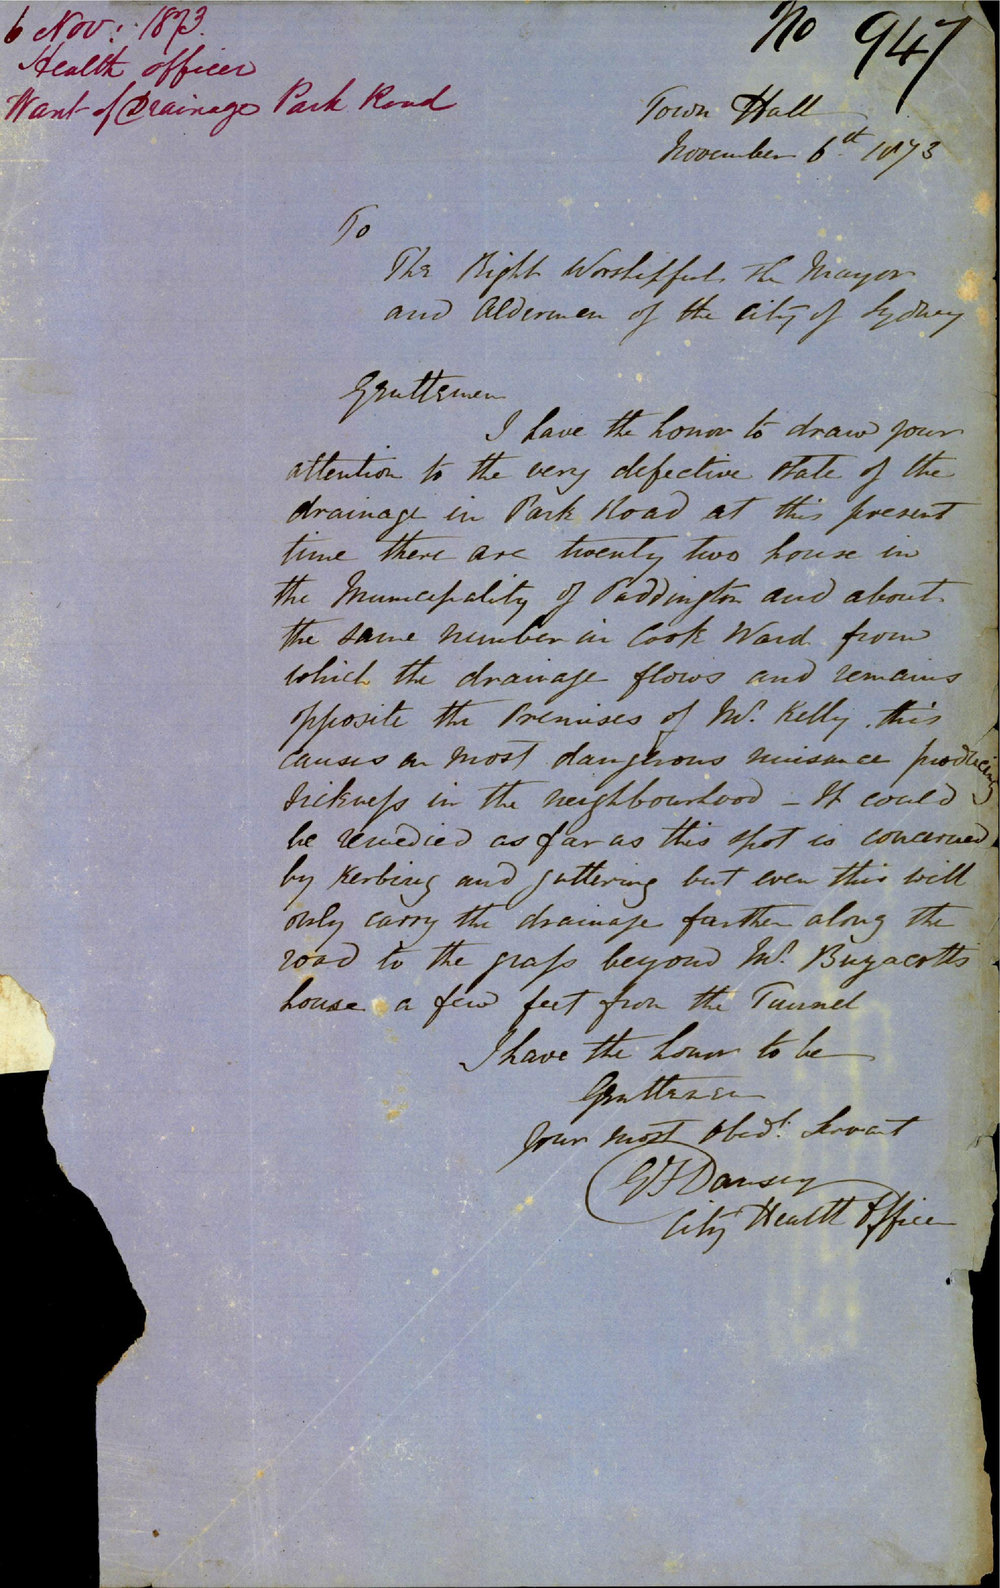 6 Nov: 1873.
Health officer
Want of Drainage Park Road
No 947
Town Hall
November 6th 1873
To
The Right Worshipful the Mayor
and Aldermen of the City of Sydney
Gentlemen
I have the honor to draw your
attention to the very defective state of the
drainage in Park Road at this present
time there are twenty two house in
the Municipality of Paddington and about
the same number in Cook Ward from
which the drainage flows and remains
opposite the Premises of Mr. Kelly. this
causes a most dangerous nuisance producing
sickness in the neighbourhood - It could
be remedied as far as this spot is concerned
by Kerbing and guttering but even this will
only carry the drainage farther along the
road to the grass beyond Mr. Buyacotts
house a few feet from the Tunnel
I have the honor to be
Gentlemen
Your most Obedt. Servant
G F Dansey
City Health Officer